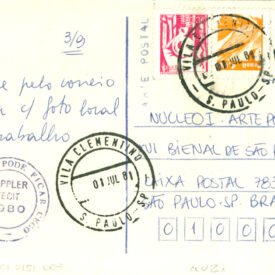 3/9
ARTE POSTAL
VILA CLEMENTINO
01 JUL 81
S. PAULO-SP
e pelo correio
c/ foto local
trabalho
VILA CLEMENTINO
01 JUL 81
S. PAULO-SP
PODE FICAR CEGO
NUCLEO I-ARTE PO
XVI BIENAL DE SÃO P
CAIXA POSTAL 783
SÃO PAULO-SP. BRA
0 1 0 0 0